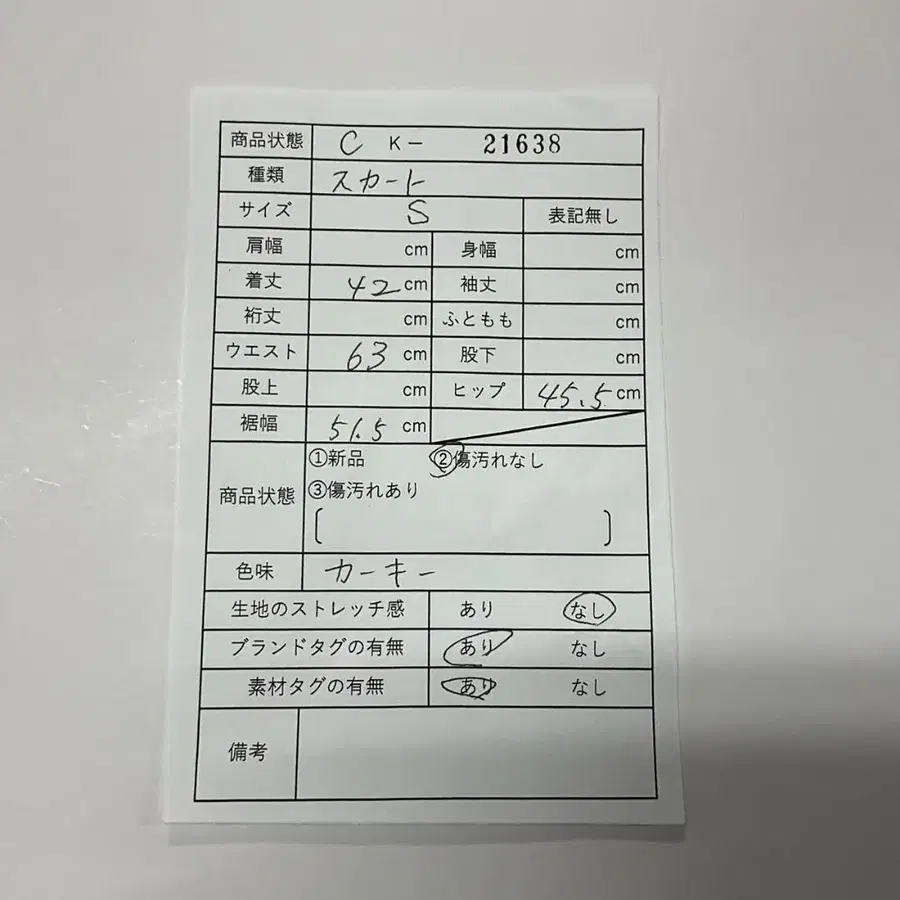 商品状態 C K- 21638
種類 スカート
サイズ S 表記無し
肩幅 cm 身幅 cm
着丈 42 cm 袖丈 cm
裄丈 cm ふともも cm
ウエスト 63 cm 股下 cm
股上 cm ヒップ 45.5 cm
裾幅 51.5 cm
①新品 ②傷汚れなし
商品状態 ③傷汚れあり
[ ]
色味 カーキー
生地のストレッチ感 あり なし
ブランドタグの有無 あり なし
素材タグの有無 あり なし
備考